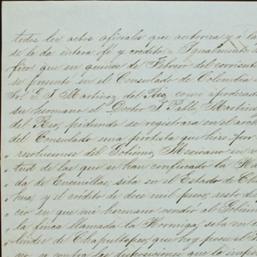 todos los actos oficiales que autoriza y a la
se le da entera fé y crédito. Igualmente
fico que en quince de Febrero del corriente
se presentó en el Consulado de Colombia
Sr. G. S. Martinez del Rio, como apoderado
su hermano el Doctor D. Pablo Martinez
del Rio, pidiendo se registrara en el
del Consulado una protesta que hizo por
resoluciones del Gobierno Mexicano en
tud de las que se han confiscado la
da de Encinillas, sita en el Estado de
hua, y el crédito de diez mil pesos, resto de
cio en que mi hermano vendió al Gobierno
la finca llamada la Hormiga, sita en
de Chapultepec, que hoy posee el